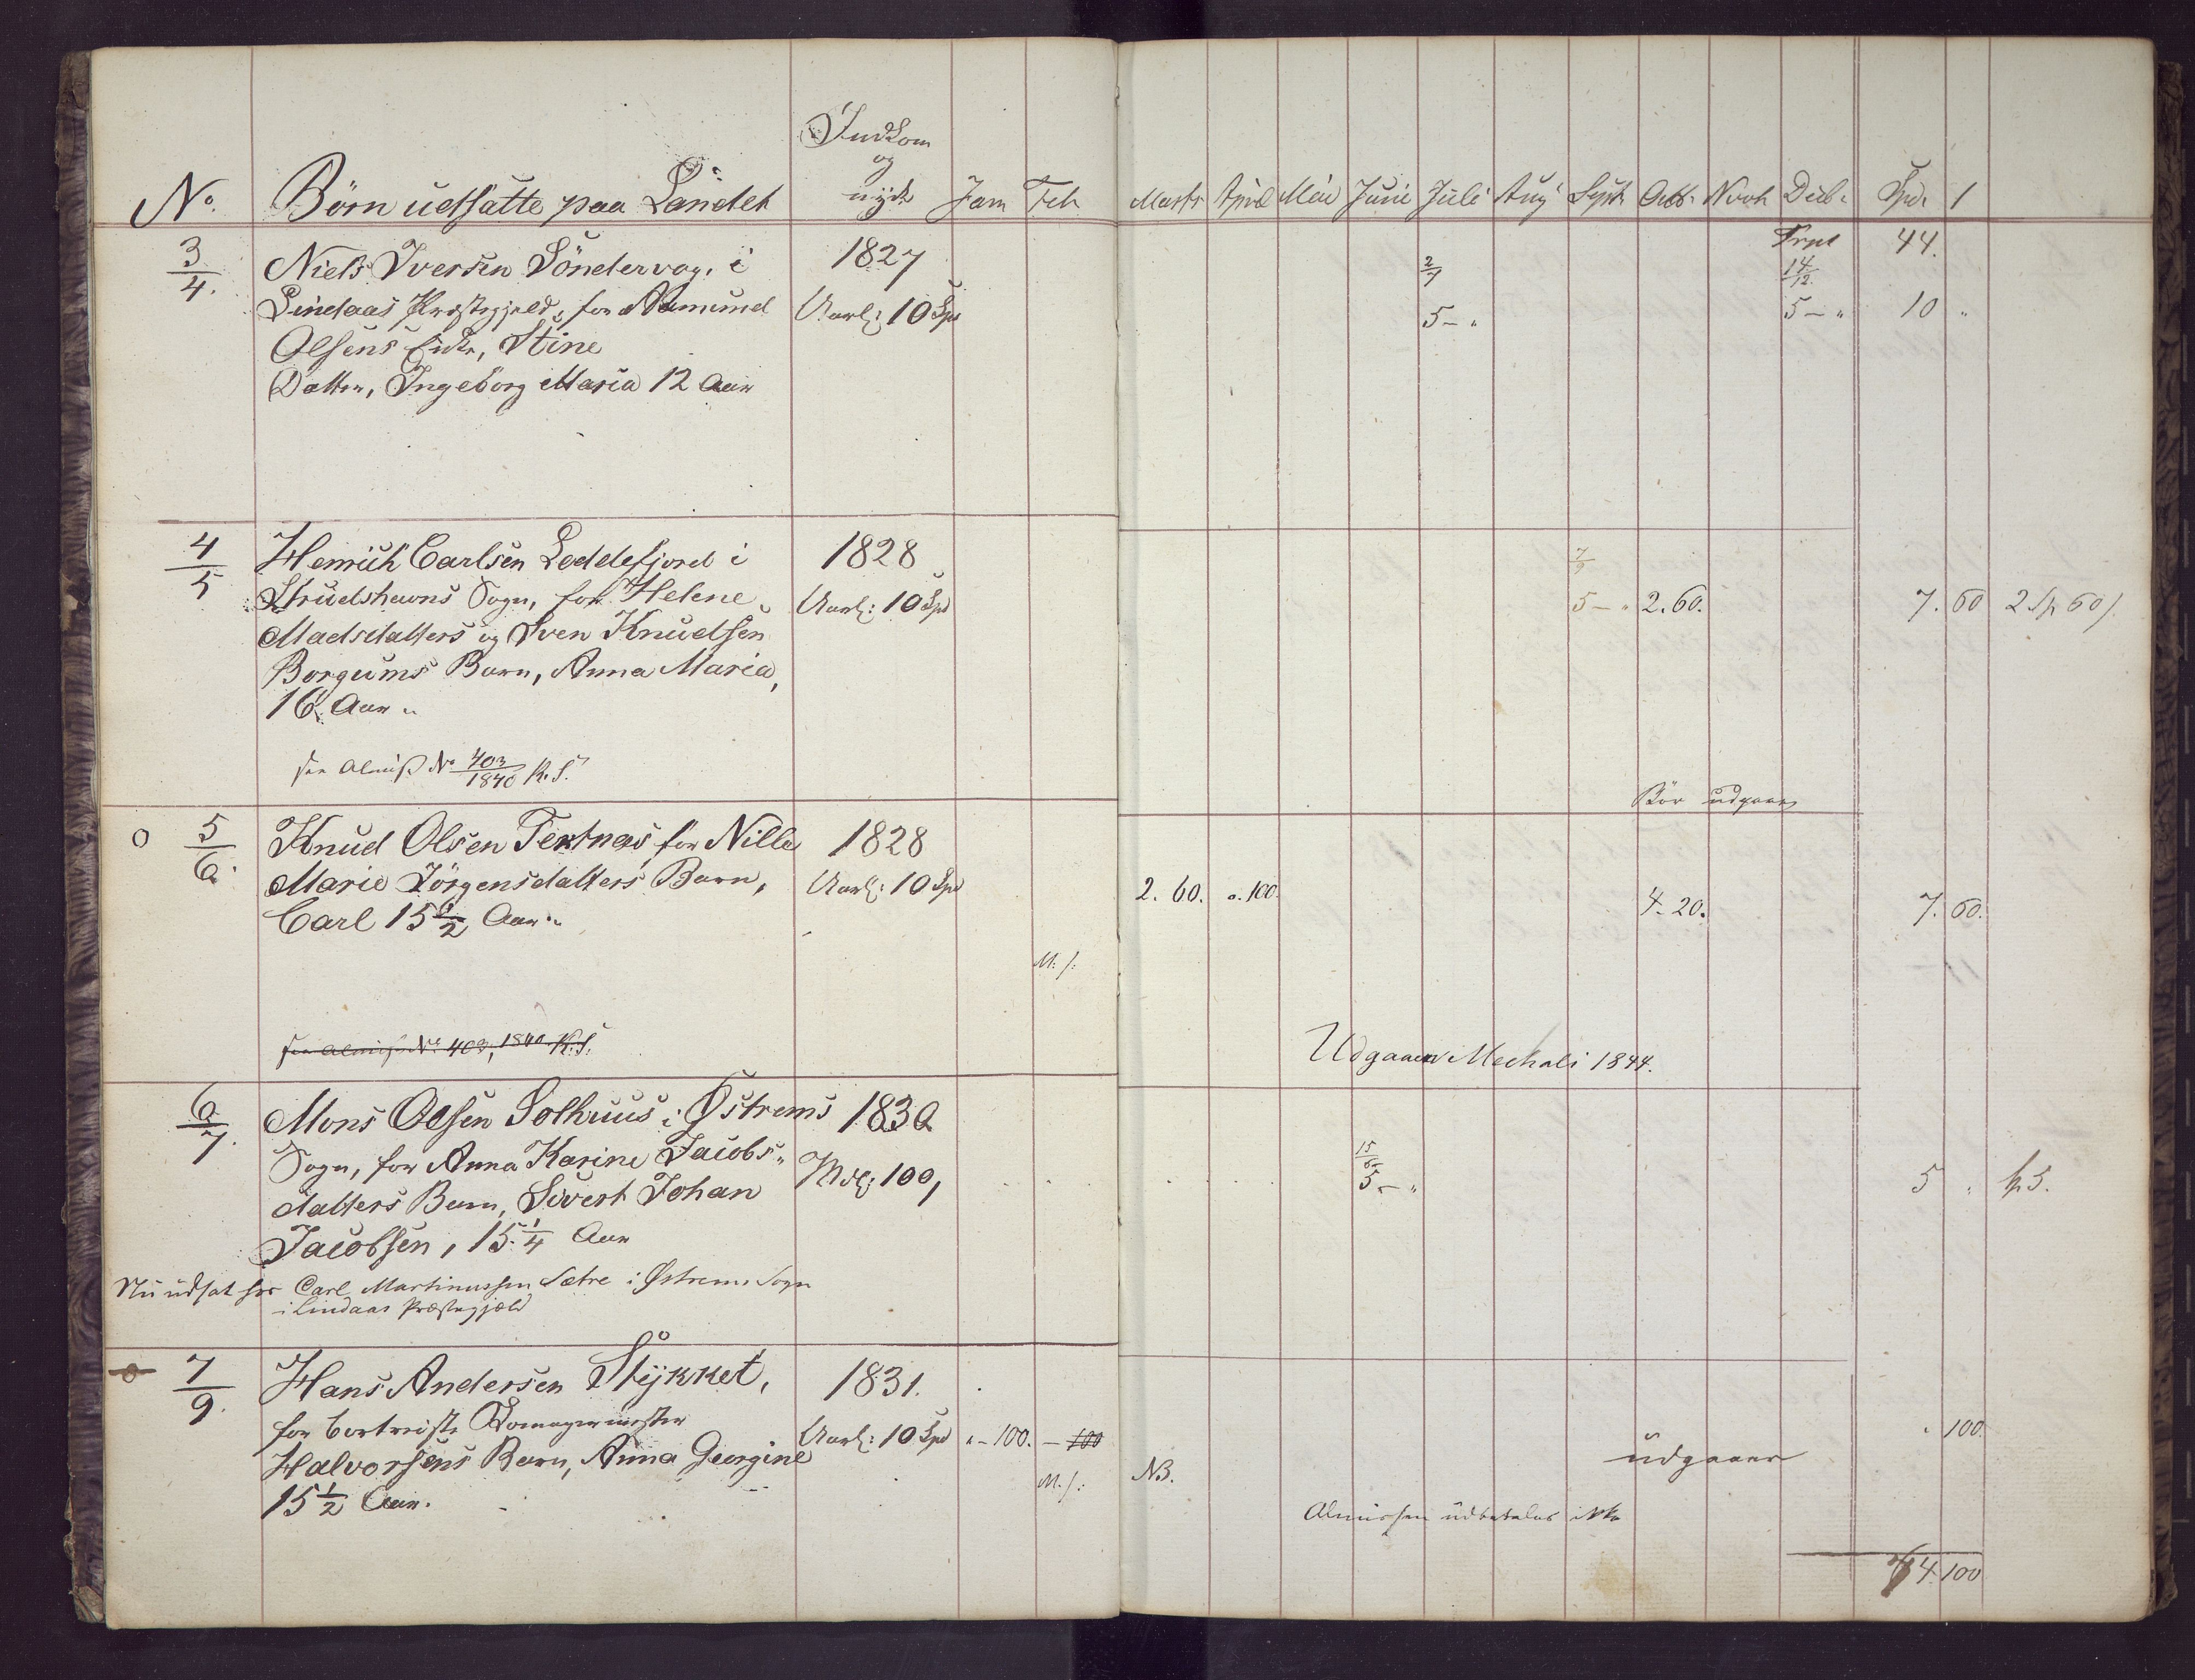 Indkom
og
nyder
No. Börn udsatte paa Landet Jan Feb Marts April Mai Juni Juli Aug Sept Octb. Novb Decb. Spd. 1
3/4. Niels Iversen Söndervog, i 1827 2/7 Trpt 44.
14/12
Lindaas Præstegjeld, for Aamund Aarl: 10 Spd 5 - " 5 - " 10 "
Olsens Enke, Stine
Datter, Ingeborg Maria 12 Aar
4/5 Henrich Carlsen Loddefjord i 1828
Strudshavns Sogn, for Helene Aarl: 10 Spd 5 - " 2. 60. 7. 60 2 Sp 60 s.
Madsdatters og Sven Knudsen
Borgums Barn, Anna Maria,
16 Aar "
see Almiss No 403/1840 K. S.
Bör udgaae
0 5/6. Knud Olsen Tertnæs for Nille 1828
Marie Jörgensdatters Barn, Aarl: 10 Spd 2. 60. ". 100. 4. 20. 7. 60.
Carl 15 1/2 Aar "
M. /:
see Almiss No 403, 1840 K. S.
Udgaaer Mechali 1844.
6/7. Mons Olsen Solhuus i Østrems 1830
Sogn, for Anna Karine Jacobs- Mdl: 100, 15/6 5 - " 5 " Sp 5.
datters Barn, Sivert Johan
Jacobsen, 15 1/4 Aar
Nu udsat hos Carl Martinussen Sætre i Østrems Sogn
i Lindaas Præstegjæld
0 7/9. Hans Andersen Stykket, 1831.
for bortreiste Skomagermester Aarl: 10 Spd " - 100. - 100 " 100.
Halvorsens Barn, Anna Georgine udgaaer
M. /: NB.
15 1/2 Aar.
Almissen udbetales ikke
74. 100